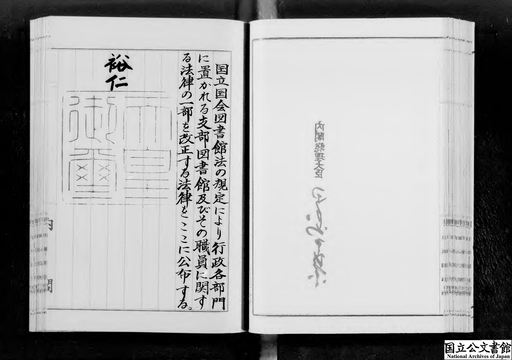 国立国会図書館法の規定により行政各部門
に置かれる支部図書館及びその職員に関す
る法律の一部を改正する法律をここに公布する。
裕仁
天皇御璽
内閣
内閣総理大臣
国立公文書館
National Archives of Japan